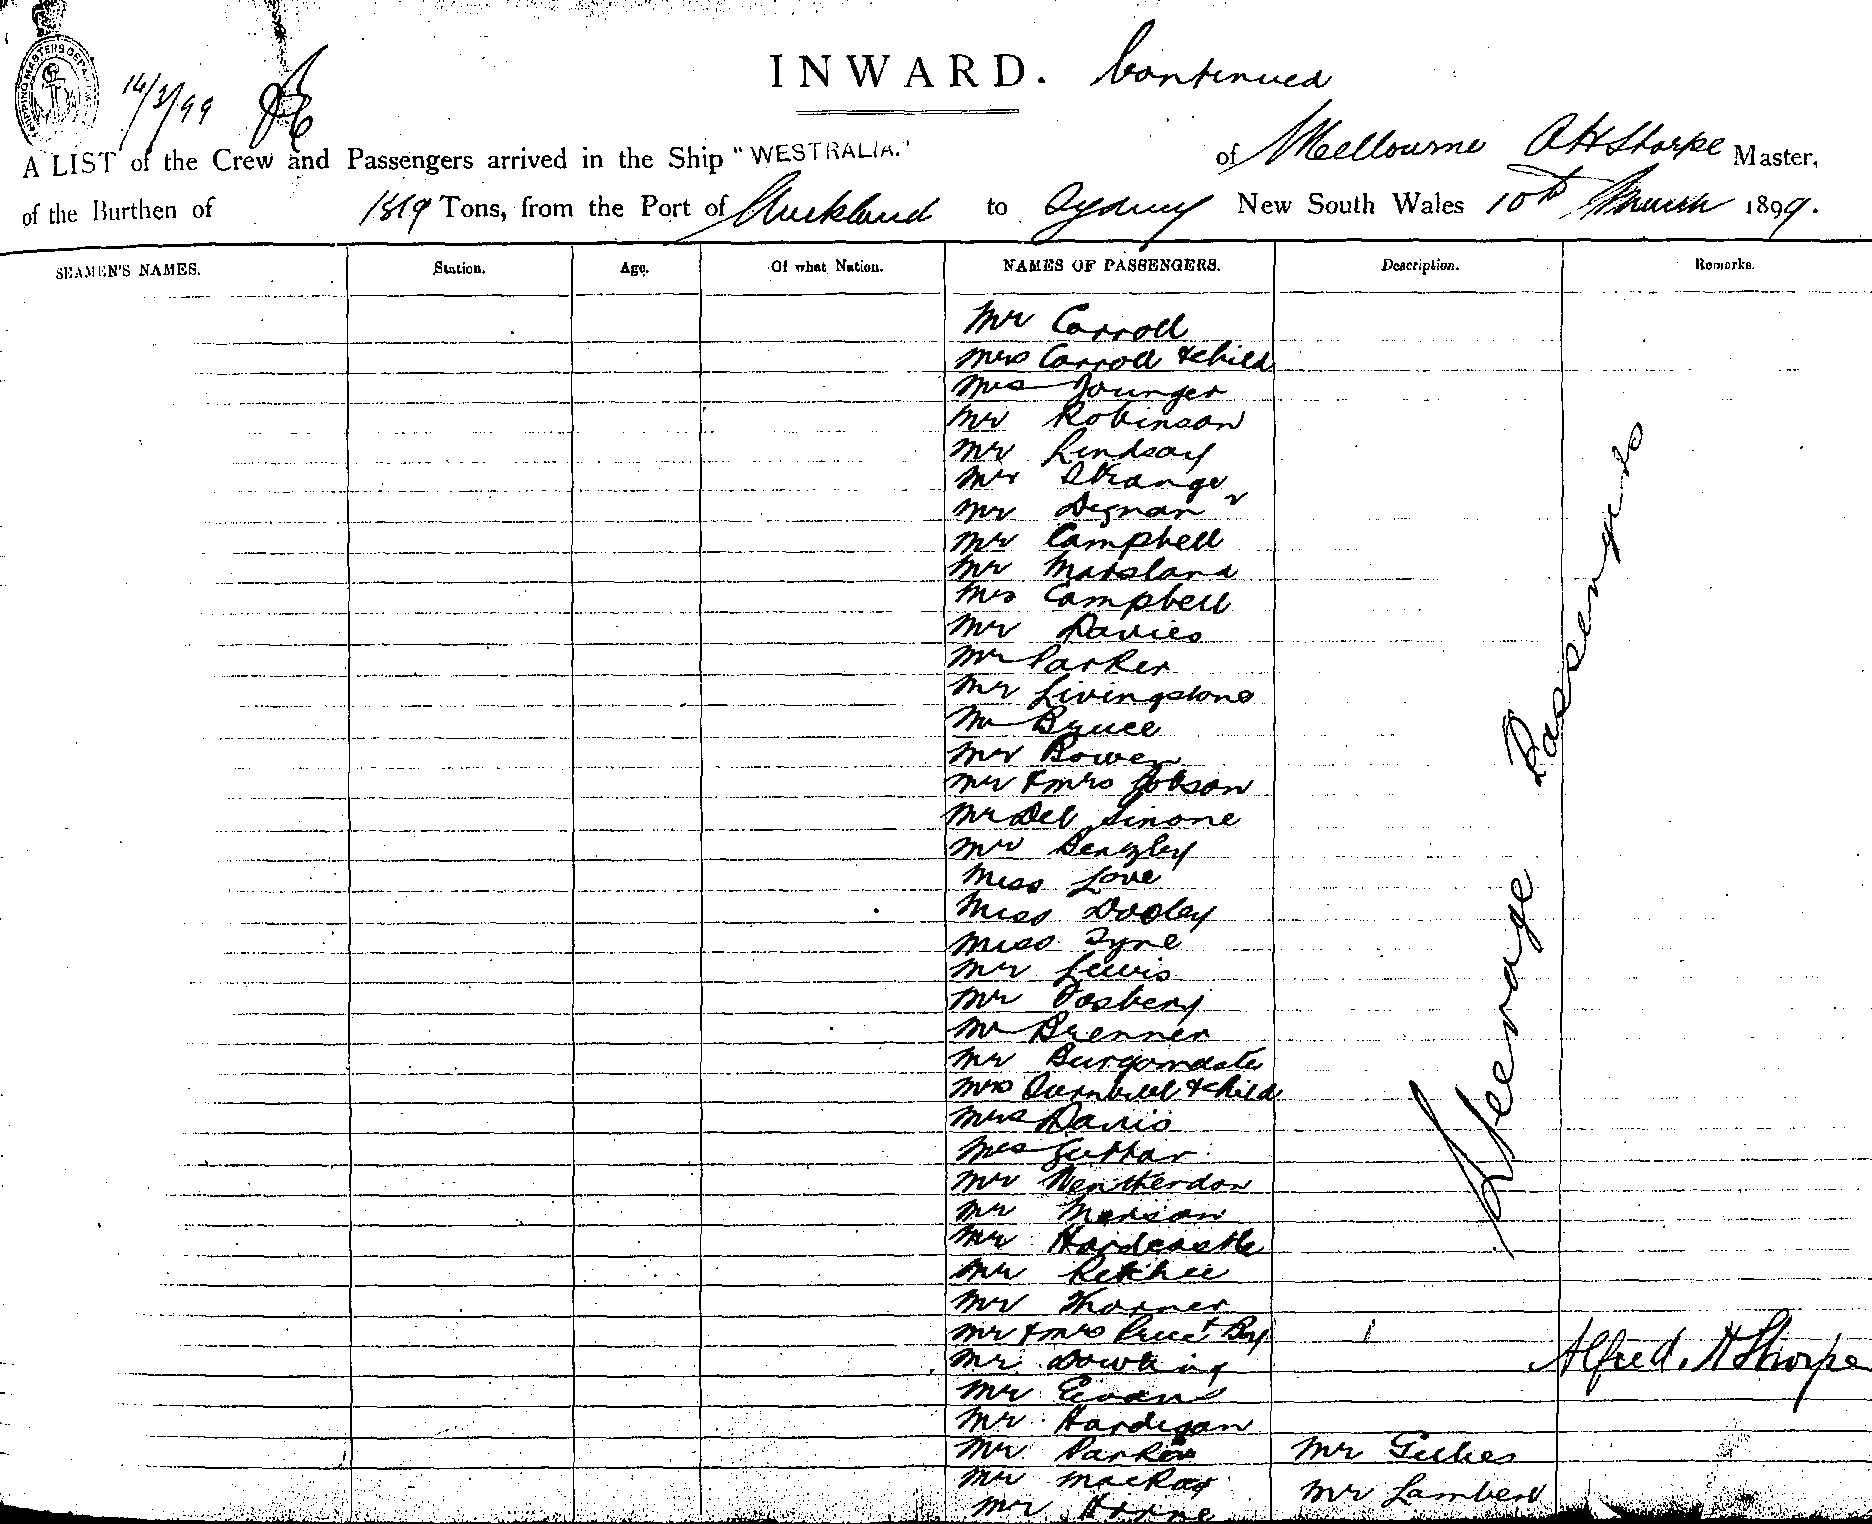 INWARD. Continued
14/3/99
A LIST of the Crew and Passengers arrived in the Ship "WESTRALIA." of Melbourne A H Thorpe Master,
of the Burthen of 1819 Tons, from the Port of Auckland to Sydney New South Wales 10th March 1899.
SEAMEN'S NAMES. Station. Age. Of what Nation. NAMES OF PASSENGERS. Description. Remarks.
Mr Carroll
Mrs Carroll & child
Mrs Younger
Mr Robinson
Mr Lindsay
Mr Stranger
Mr Degnan
Mr Campbell
Mr Marsland
Mrs Campbell
Mr Davies
Mr Parker
Mr Livingstone
Mr Bruce
Mr Bowen
Mr & Mrs Jobson
Mr Del Sinone
Mr Beazley
Miss Love
Miss Dooley
Miss Tyne
Mr Lewis
Mr
Mr Brenner
Mr
Mrs Turnbull & child
Mrs Davis
Mrs
Mr
Mr
Mr Hardcastle
Mr Ritchie
Mr Thorner
Mr & Mrs Price & Boy
Mr Dowling
Mr Evans
Mr Hardigan
Mr Parker Mr Gilkes
Mr MacKay Mr Lambert
Mr Horne
Steerage Passengers
Alfred. H Thorpe